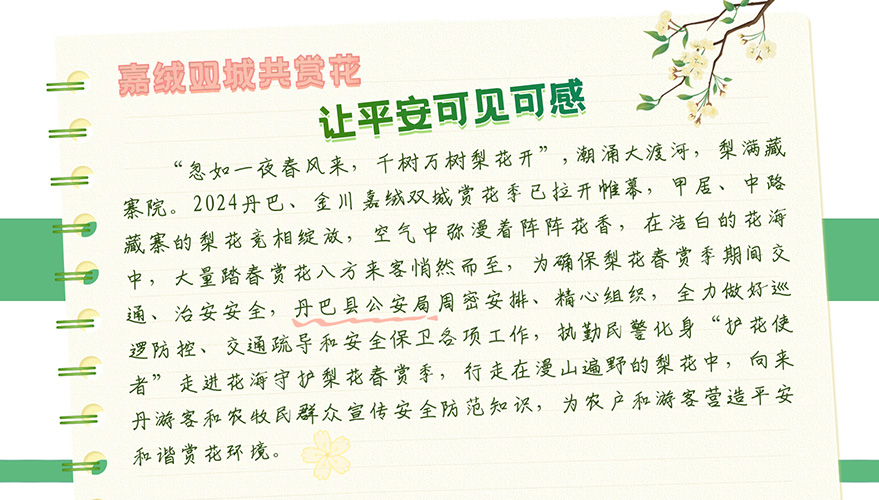 嘉绒双城共赏花
让平安可见可感
“忽如一夜春风来，千树万树梨花开”，潮涌大渡河，梨满藏
寨院。2024丹巴、金川嘉绒双城赏花季已拉开帷幕，甲居、中路
藏寨的梨花竞相绽放，空气中弥漫着阵阵花香，在洁白的花海
中，大量踏春赏花八方来客悄然而至，为确保梨花春赏季期间交
通、治安安全，丹巴县公安局周密安排、精心组织，全力做好巡
逻防控、交通疏导和安全保卫各项工作，执勤民警化身“护花使
者”走进花海守护梨花春赏季，行走在漫山遍野的梨花中，向来
丹游客和农牧民群众宣传安全防范知识，为农户和游客营造平安
和谐赏花环境。